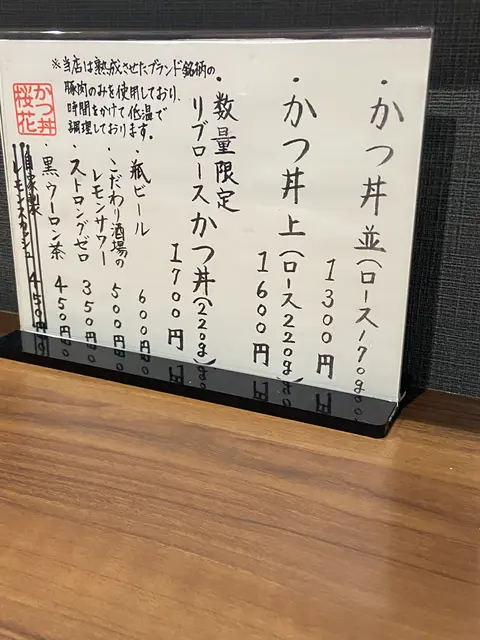 ・かつ丼 並(ロース170g)
1300円
・かつ丼 上(ロース220g)
1600円
・数量限定
リブロースかつ丼(220g)
1700円
・瓶ビール
600円
・こだわり酒場の
レモンサワー
500円
・ストロングゼロ
350円
・黒ウーロン茶
450円
・自家製
レモンスカッシュ
450円
※当店は熟成させたブランド銘柄の
豚肉のみを使用しており、
時間をかけて低温で
調理しております。
かつ丼
桜花